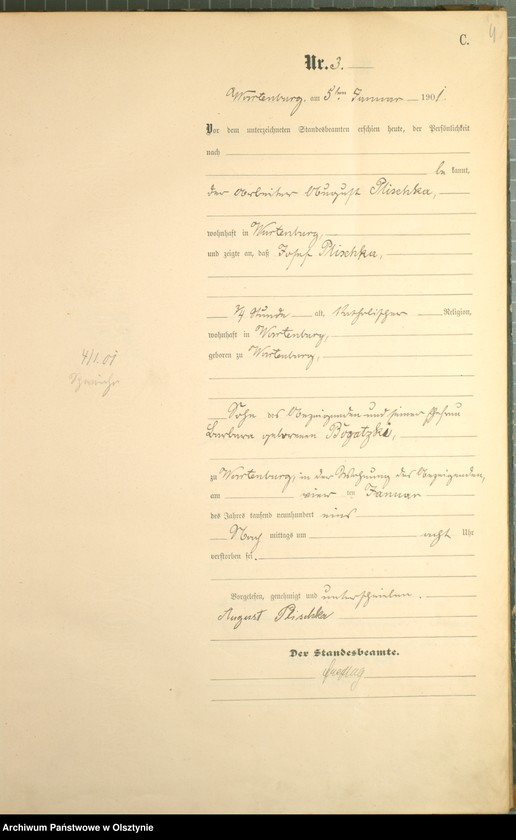 C.
4
Nr. 3.
Wartenburg, am 5ten Januar 1901.
Vor dem unterzeichneten Standesbeamten erschien heute, der Persönlichkeit
nach
be kannt,
der Arbeiter August Plischka,
wohnhaft in Wartenburg,
und zeigte an, daß Josef Plischka,
3/4 Stunde alt, katholischer Religion,
wohnhaft in Wartenburg,
geboren zu Wartenburg,
4/1.01
Sohn des Anzeigenden und seiner Ehefrau
Barbara geborenen Bogatzki,
zu Wartenburg, in der Wohnung des Anzeigenden,
am vier ten Januar
des Jahres tausend neunhundert eins
Nach mittags um acht Uhr
verstorben sei.
Vorgelesen, genehmigt und unterschrieben.
August Plischka
Der Standesbeamte.
Archiwum Państwowe w Olsztynie